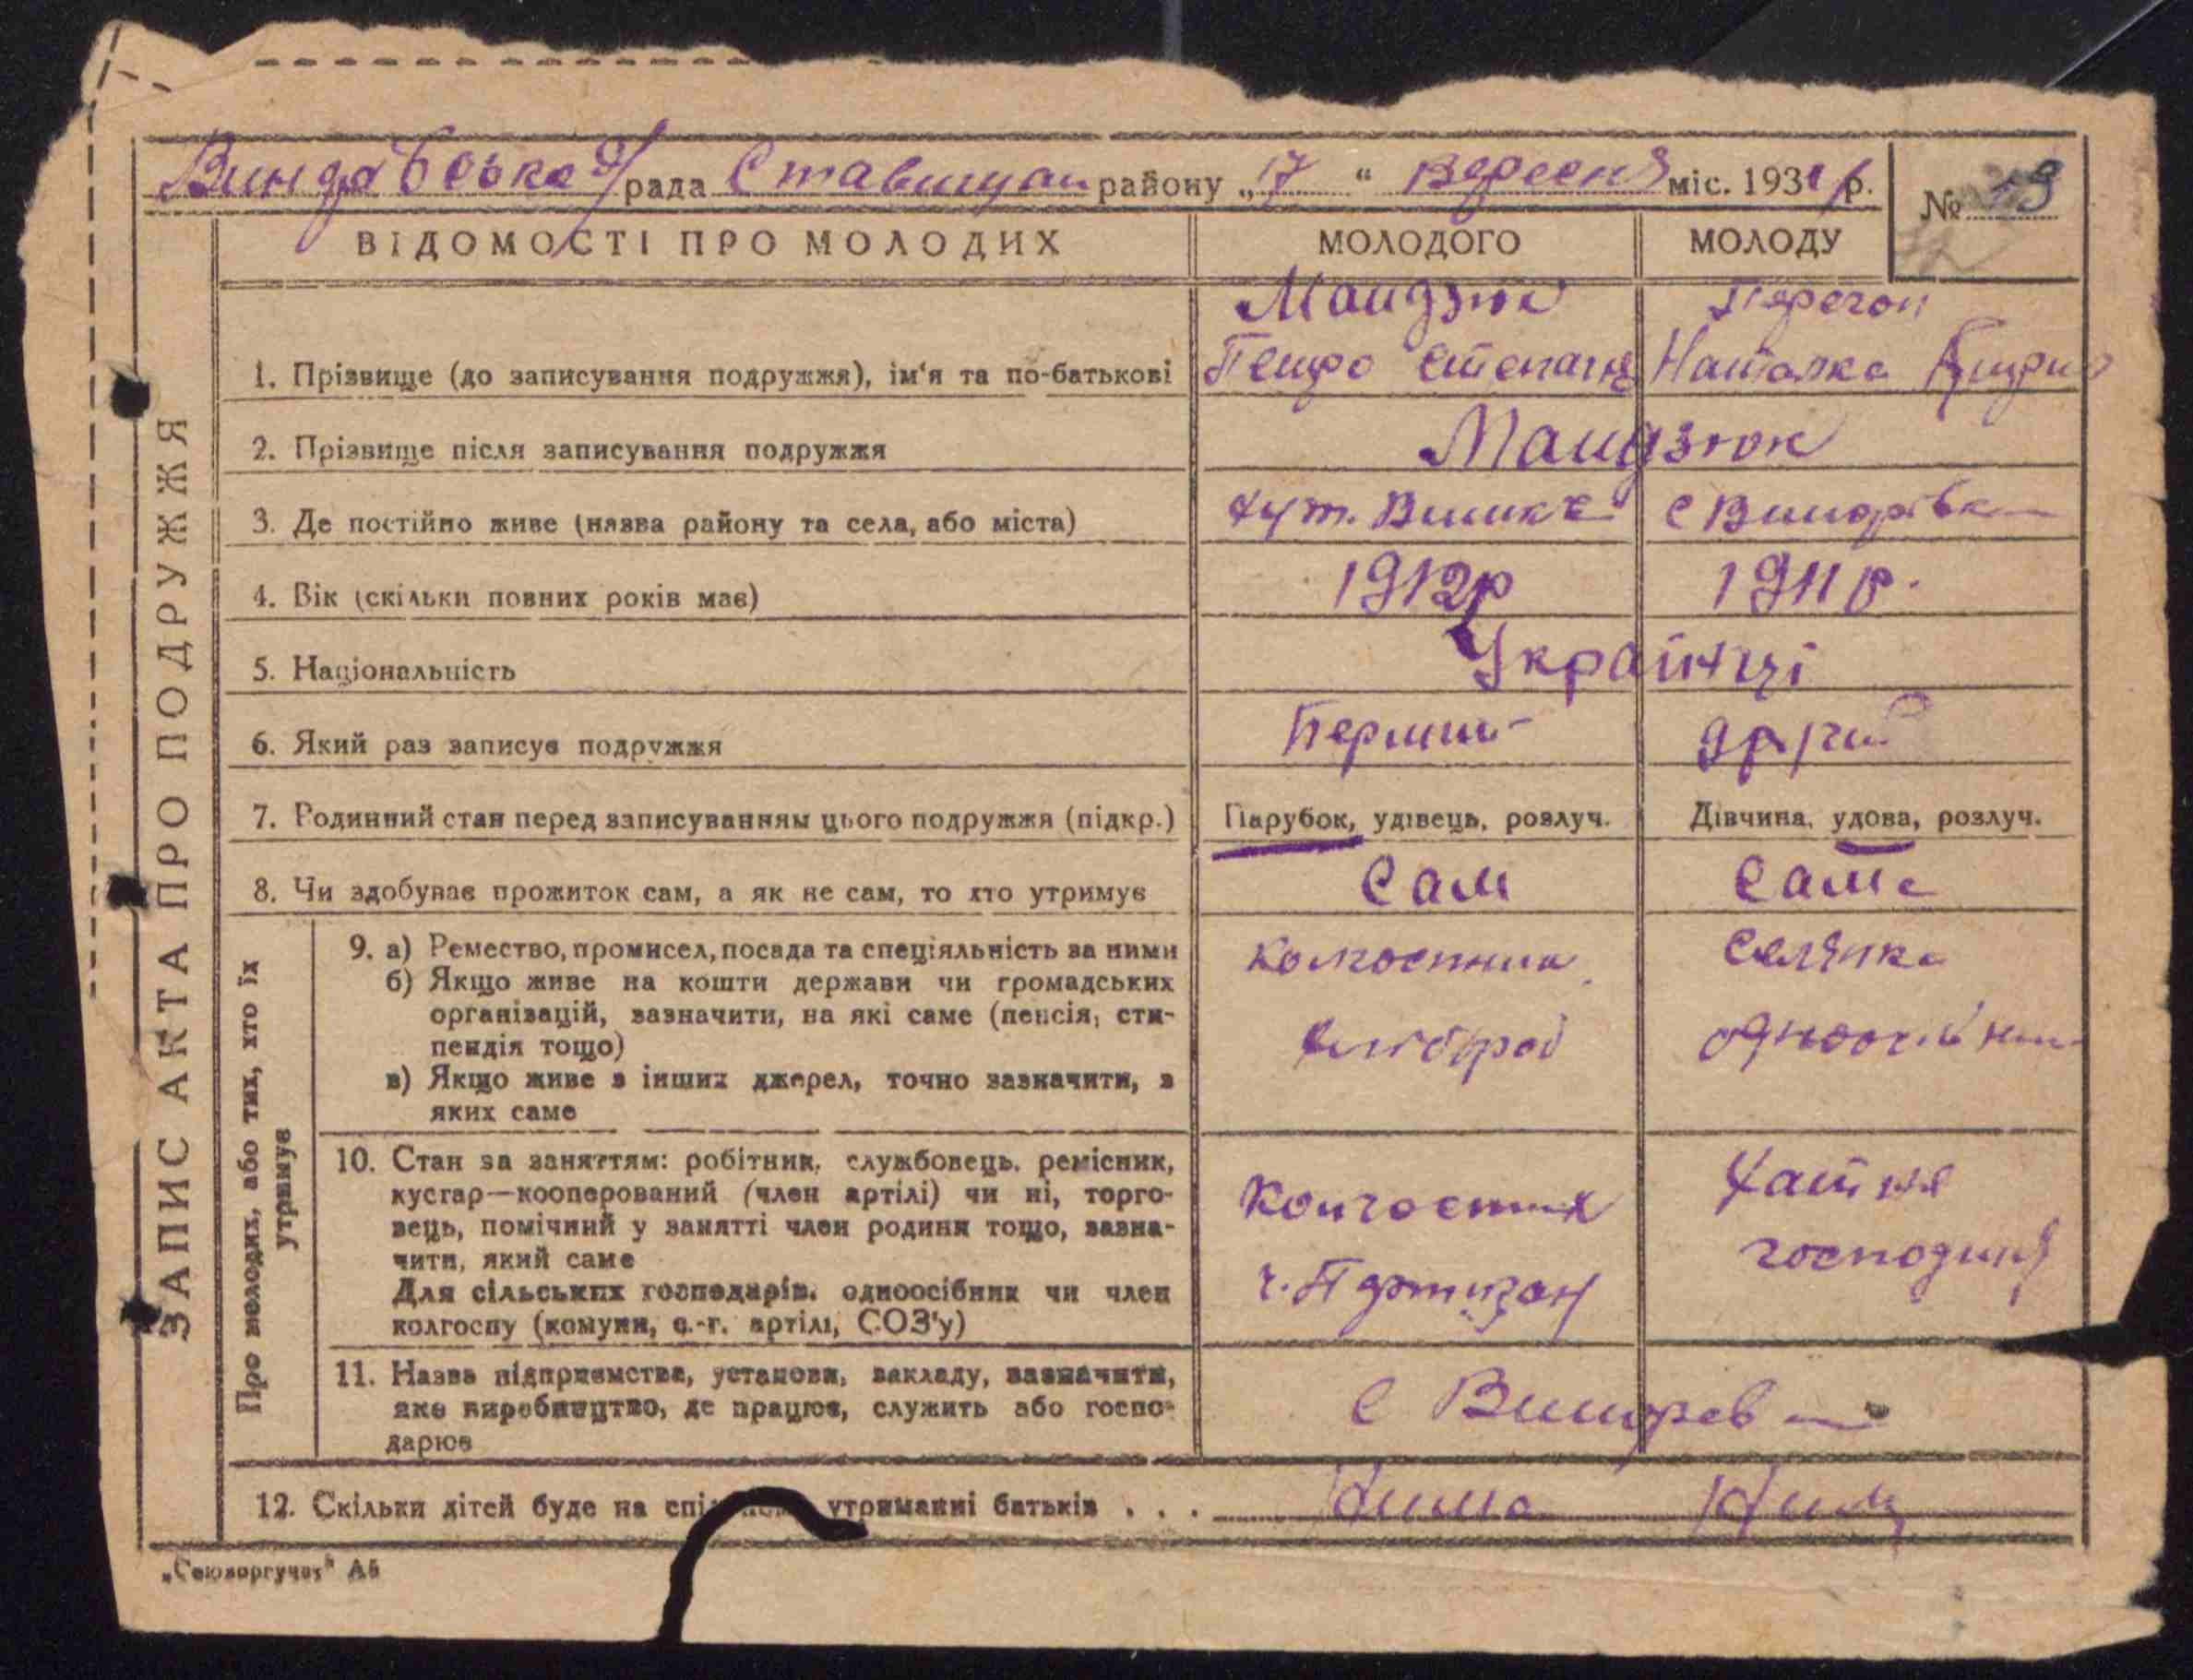 рада Ставищан району „17“ Вересня міс. 193 р.
№ 19
ВІДОМОСТІ ПРО МОЛОДИХ МОЛОДОГО МОЛОДУ
1. Прізвище (до записування подружжя), ім'я та по-батькові
Петро Степан Наталка
2. Прізвище після записування подружжя
3. Де постійно живе (назва району та села, або міста) хут. с Винарівка
4. Вік (скільки повних років має) 1912р 1911 р.
5. Національність Українці
6. Який раз записує подружжя Перший другий
7. Родинний стан перед записуванням цього подружжя (підкр.) Парубок, удівець, розлуч. Дівчина, удова, розлуч.
8. Чи здобуває прожиток сам, а як не сам, то хто утримує Сам Сама
9. а) Ремество, промисел, посада та спеціяльність за ними колгоспник Селянка
б) Якщо живе на кошти держави чи громадських
організацій, зазначити, на які саме (пенсія, сти-
пендія тощо)
в) Якщо живе з інших джерел, точно зазначити, з
яких саме
10. Стан за заняттям: робітник, службовець, ремісник,
кустар—кооперований (член артілі) чи ні, торго-
вець, помічний у занятті член родини тощо, зазна-
чити, який саме
Для сільських господарів, одноосібник чи член
колгоспу (комуни, с.-г. артілі, СОЗ'у)
Колгоспник Хатня
ч. Партизан господиня
11. Назва підприємства, установи, закладу, зазначити,
яке виробництво, де працює, служить або госпо-
дарює
12. Скільки дітей буде на утриманні батьків . . . Нима Нима
ЗАПИС АКТА ПРО ПОДРУЖЖЯ
Про молодих, або тих, хто їх
утримує
„Союзоргучет“ А5